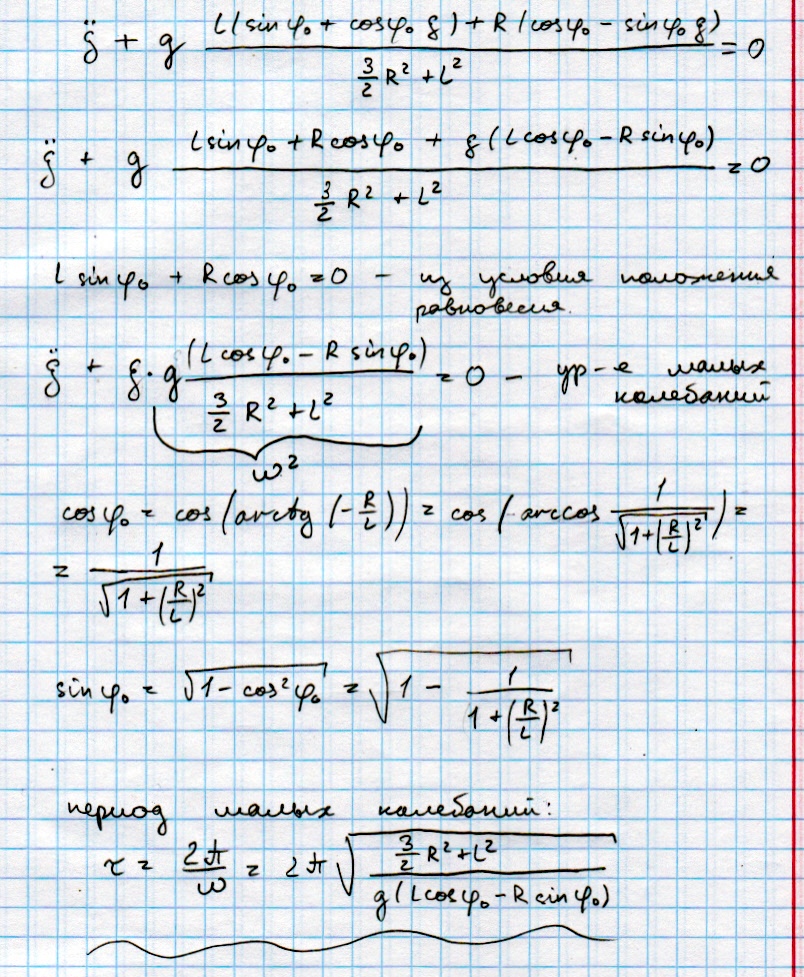 ξ̈ + g (L(sinφ₀ + cosφ₀ ξ) + R(cosφ₀ − sinφ₀ ξ)) / (3/2 R² + L²) = 0
ξ̈ + g (Lsinφ₀ + Rcosφ₀ + ξ(Lcosφ₀ − R sinφ₀)) / (3/2 R² + L²) = 0
L sinφ₀ + Rcosφ₀ = 0 − из условия положения
равновесия.
ξ̈ + ξ · g (Lcosφ₀ − R sinφ₀) / (3/2 R² + L²) = 0 − ур-е малых
колебаний
ω²
cosφ₀ = cos(arctg(−R/L)) = cos(−arccos 1/√(1+(R/L)²)) =
= 1/√(1+(R/L)²)
sinφ₀ = √(1 − cos²φ₀) = √(1 − 1/(1+(R/L)²))
период малых колебаний:
τ = 2π/ω = 2π √((3/2 R² + L²) / (g(Lcosφ₀ − R sinφ₀)))